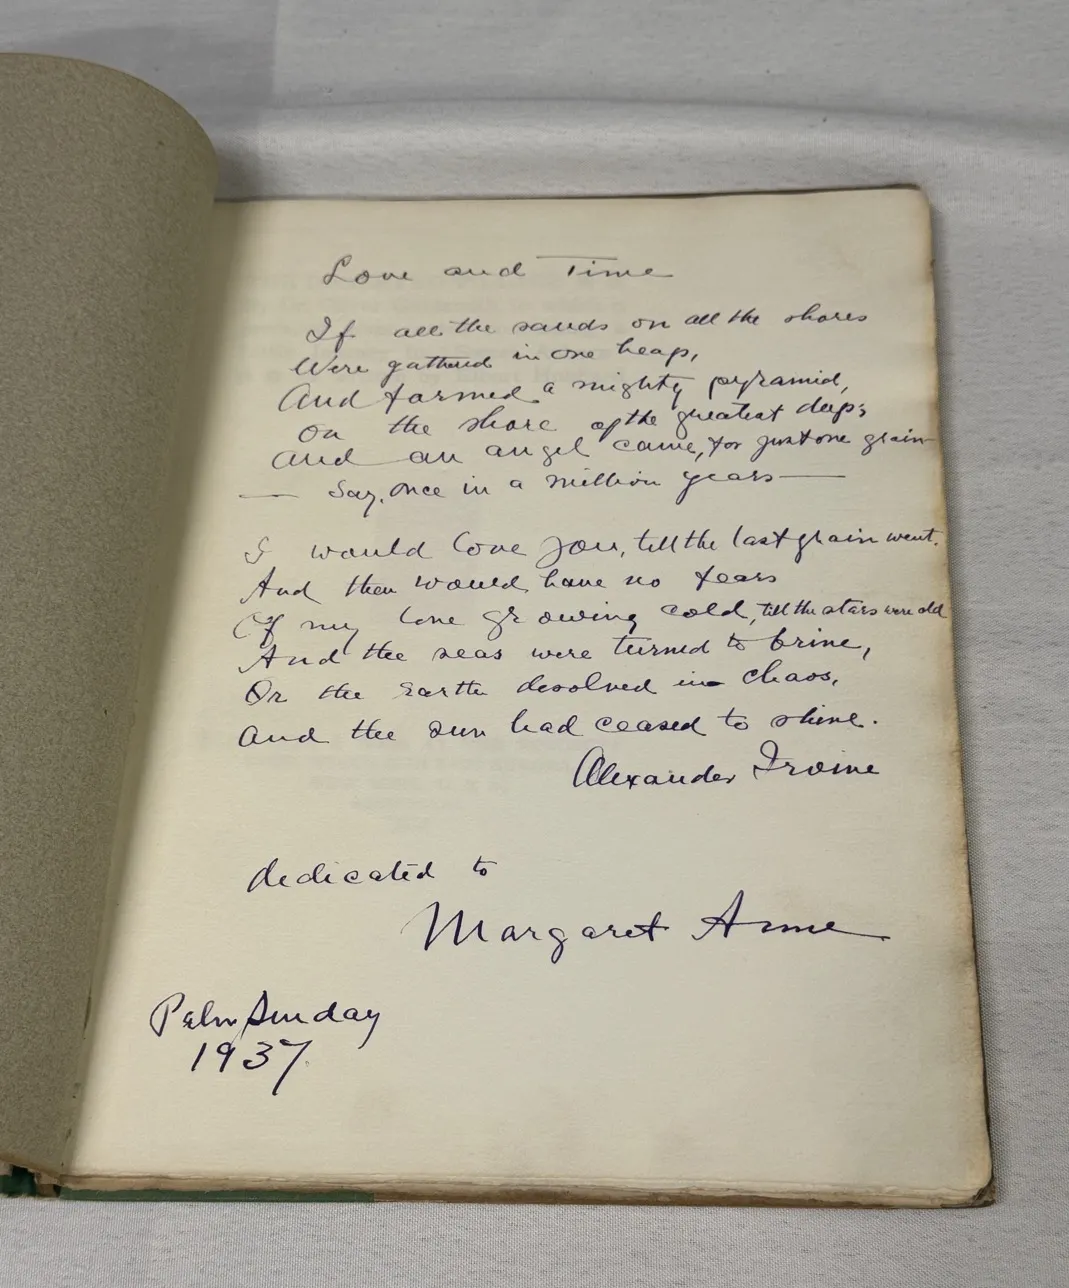 Love and Time
If all the sands on all the shores
Were gathered in one heap,
And formed a mighty pyramid,
On the shore of the greatest deep;
And an angel came, for just one grain
— Say, once in a million years —
I would love you, till the last grain went.
And then would have no fears
Of my love growing cold, till the stars were old
And the seas were turned to brine,
Or the Earth desolved in chaos,
And the sun had ceased to shine.
Alexander Irvine
dedicated to
Margaret Anne
Palm Sunday
1937.